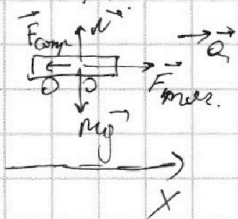 Fсопр N
a
Fтяг.
mg
X